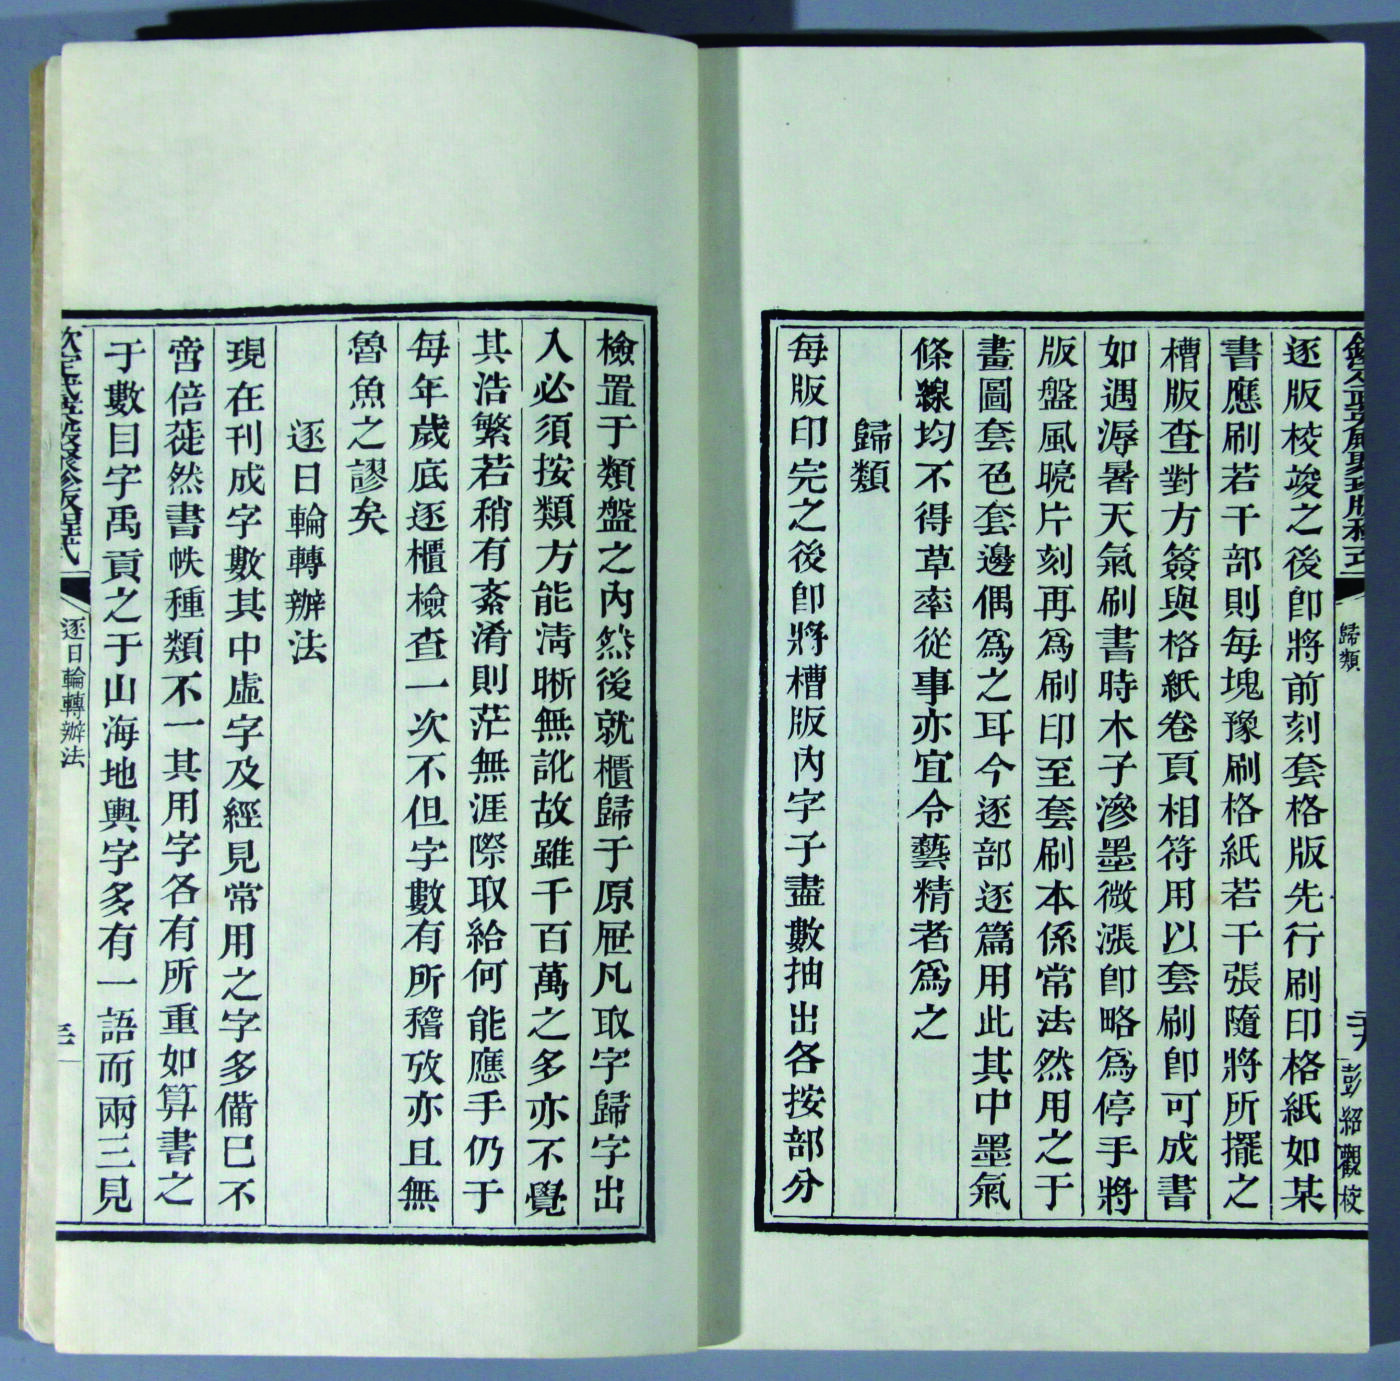 歸類
彭紹觀校
逐版校竣之後卽將前刻套格版先行刷印格紙如某
書應刷若干部則每塊豫刷格紙若干張隨將所擺之
槽版查對方簽與格紙卷頁相符用以套刷卽可成書
如遇溽暑天氣刷書時木子滲墨微漲卽略爲停手將
版盤風晾片刻再爲刷印至套刷本係常法然用之于
畫圖套色套邊偶爲之耳今逐部逐篇用此其中墨氣
條線均不得草率從事亦宜令藝精者爲之
歸類
每版印完之後卽將槽版內字子盡數抽出各按部分
檢置于類盤之內然後就櫃歸于原屉凡取字歸字出
入必須按類方能淸晰無訛故雖千百萬之多亦不覺
其浩繁若稍有紊淆則茫無涯際取給何能應手仍于
每年歲底逐櫃檢查一次不但字數有所稽攷亦且無
魯魚之謬矣
逐日輪轉辦法
現在刊成字數其中虛字及經見常用之字多備已不
啻倍蓰然書帙種類不一其用字各有所重如算書之
于數目字禹貢之于山海地輿字多有一語而兩三見
欽定武英殿聚珍版程式
逐日輪轉辦法